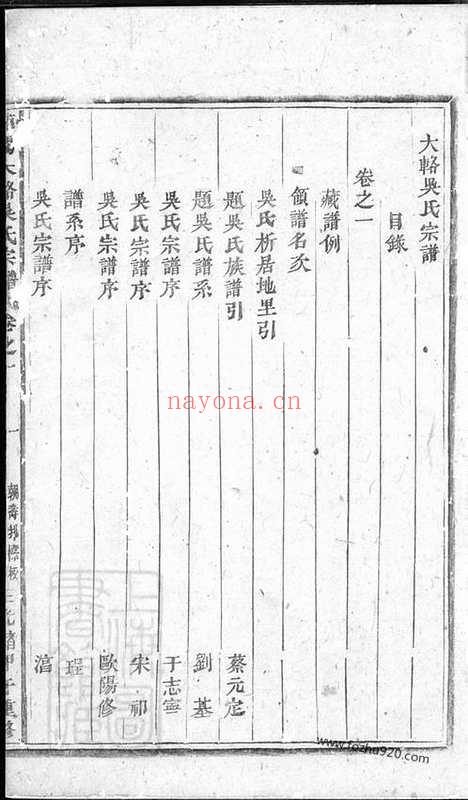 大輅吳氏宗譜
目錄
卷之一
藏譜例
領譜名次
吳氏析居地里引
題吳氏族譜引 蔡元定
題吳氏譜系 劉基
吳氏宗譜序 于志寧
吳氏宗譜序 宋祁
吳氏宗譜序 歐陽修
譜系序 珵
吳氏宗譜序 滀
大輅吳氏宗譜 卷之一
一
nayona.cn
www.fozhu920.com